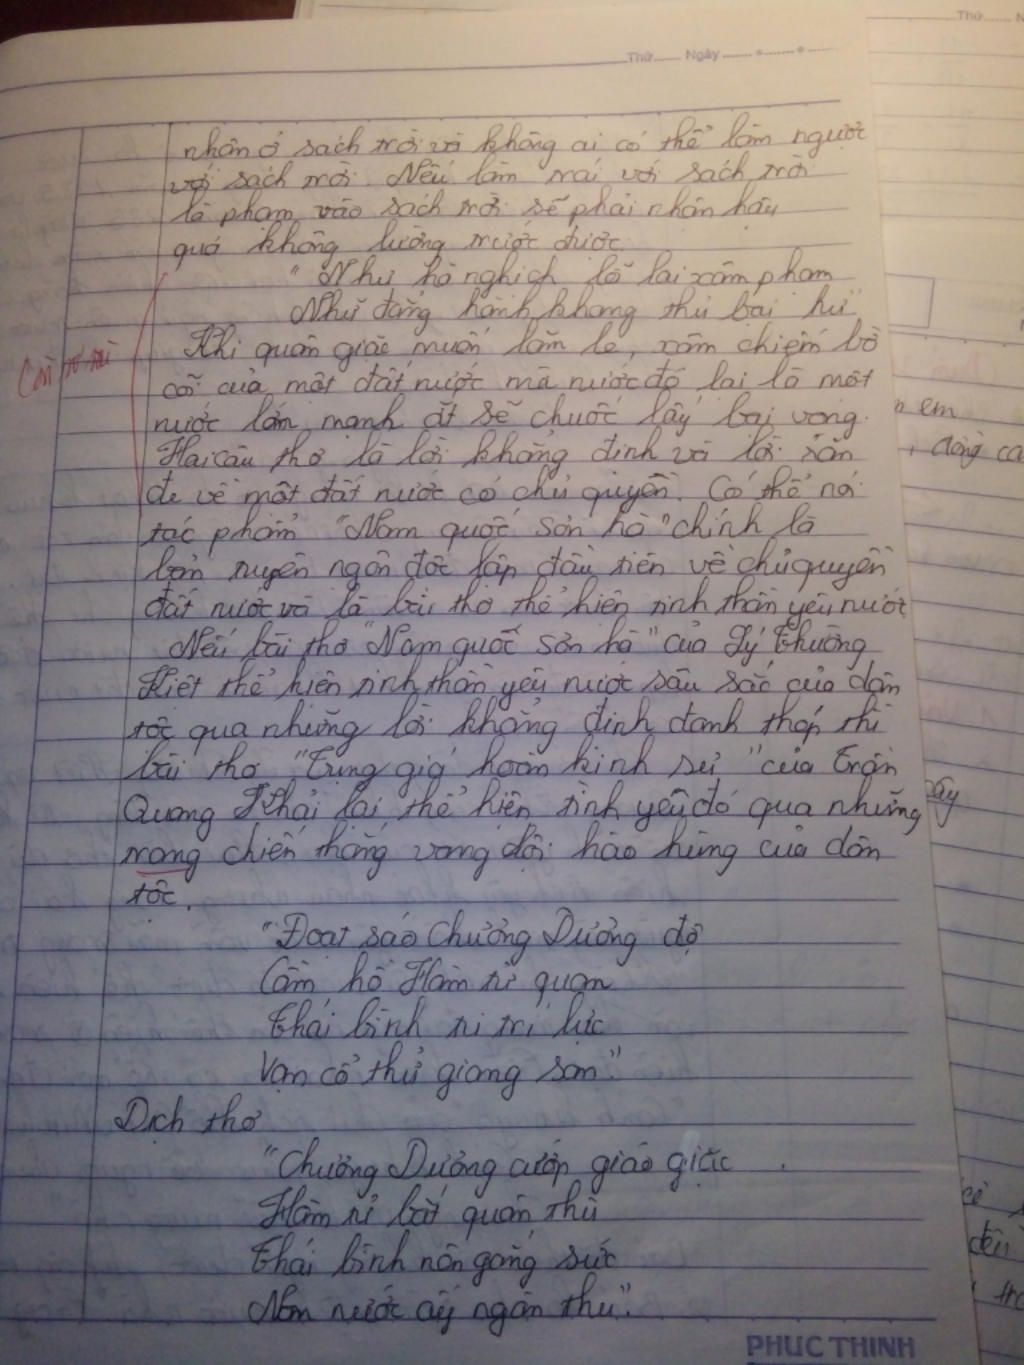 Thứ Ngày
nhận ở sách trời và không ai có thể làm ngược
với sách trời. Nếu làm trái với sách trời
là phạm vào sách trời sẽ phải nhận hậu
quả không lường trước được.
"Như hà nghịch lỗ lai xâm phạm
Nhữ đẳng hành khang thủ bại hư"
Khi quân giặc muốn lăm le, xâm chiếm bờ
cõi của một đất nước mà nước đó lại là một
nước lớn mạnh ắt sẽ chuốc lấy bại vong.
Hai câu thơ là lời khẳng định và lời răn
đe về một đất nước có chủ quyền. Có thể nói
tác phẩm "Nam quốc sơn hà" chính là
bản tuyên ngôn độc lập đầu tiên về chủ quyền
đất nước và là bài thơ thể hiện tinh thần yêu nước
Nếu bài thơ "Nam quốc sơn hà" của Lý Thường
Kiệt thể hiện tinh thần yêu nước sâu sắc của dân
tộc qua những lời khẳng định đanh thép thì
bài thơ "Tụng giá hoàn kinh sư" của Trần
Quang Khải lại thể hiện tình yêu đó qua những
trang chiến thắng vang dội hào hùng của dân
tộc.
"Đoạt sáo Chương Dương độ
Cầm hồ Hàm tử quan
Thái bình tu trí lực
Vạn cổ thử giang san"
Dịch thơ
"Chương Dương cướp giáo giặc
Hàm tử bắt quân thù
Thái bình nên gắng sức
Non nước ấy ngàn thu".
PHUC THINH
Thứ
em
, dòng ca
ây
đều